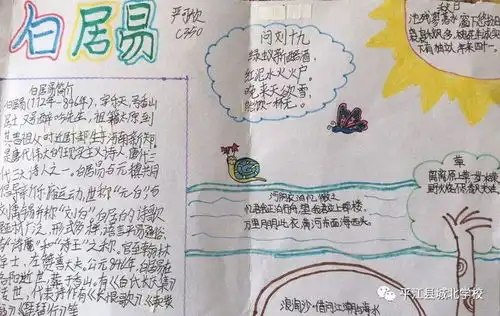 白居易
严可欣
C350
白居易简介
白居易(772年-846年),字乐天,号香山
居士,又号醉吟先生,祖籍太原,到
其曾祖父时迁下邽,生于河南新郑。
是唐代伟大的现实主义诗人,唐代三
代三大诗人之一。白居易与元稹共同
倡导新乐府运动,世称“元白”,与
刘禹锡并称“刘白”。白居易的诗歌
题材广泛,形式多样,语言平易通俗,
有“诗魔”和“诗王”之称。官至翰林
学士、左赞善大夫。公元846年,白居易在
洛阳逝世,葬于香山。有《白氏长庆集》
传世,代表诗作有《长恨歌》《卖炭
翁》《琵琶行》等
问刘十九
绿蚁新醅酒,
红泥小火炉。
晚来天欲雪,
能饮一杯无。
河阴夜泊忆微之
忆君我正泊行舟,望我君应上郡楼。
万里月明此夜,黄河东面海西头。
草
离离原上草,一岁一枯荣
野火烧
浪淘沙·借问江潮与海水
平江县城北学校